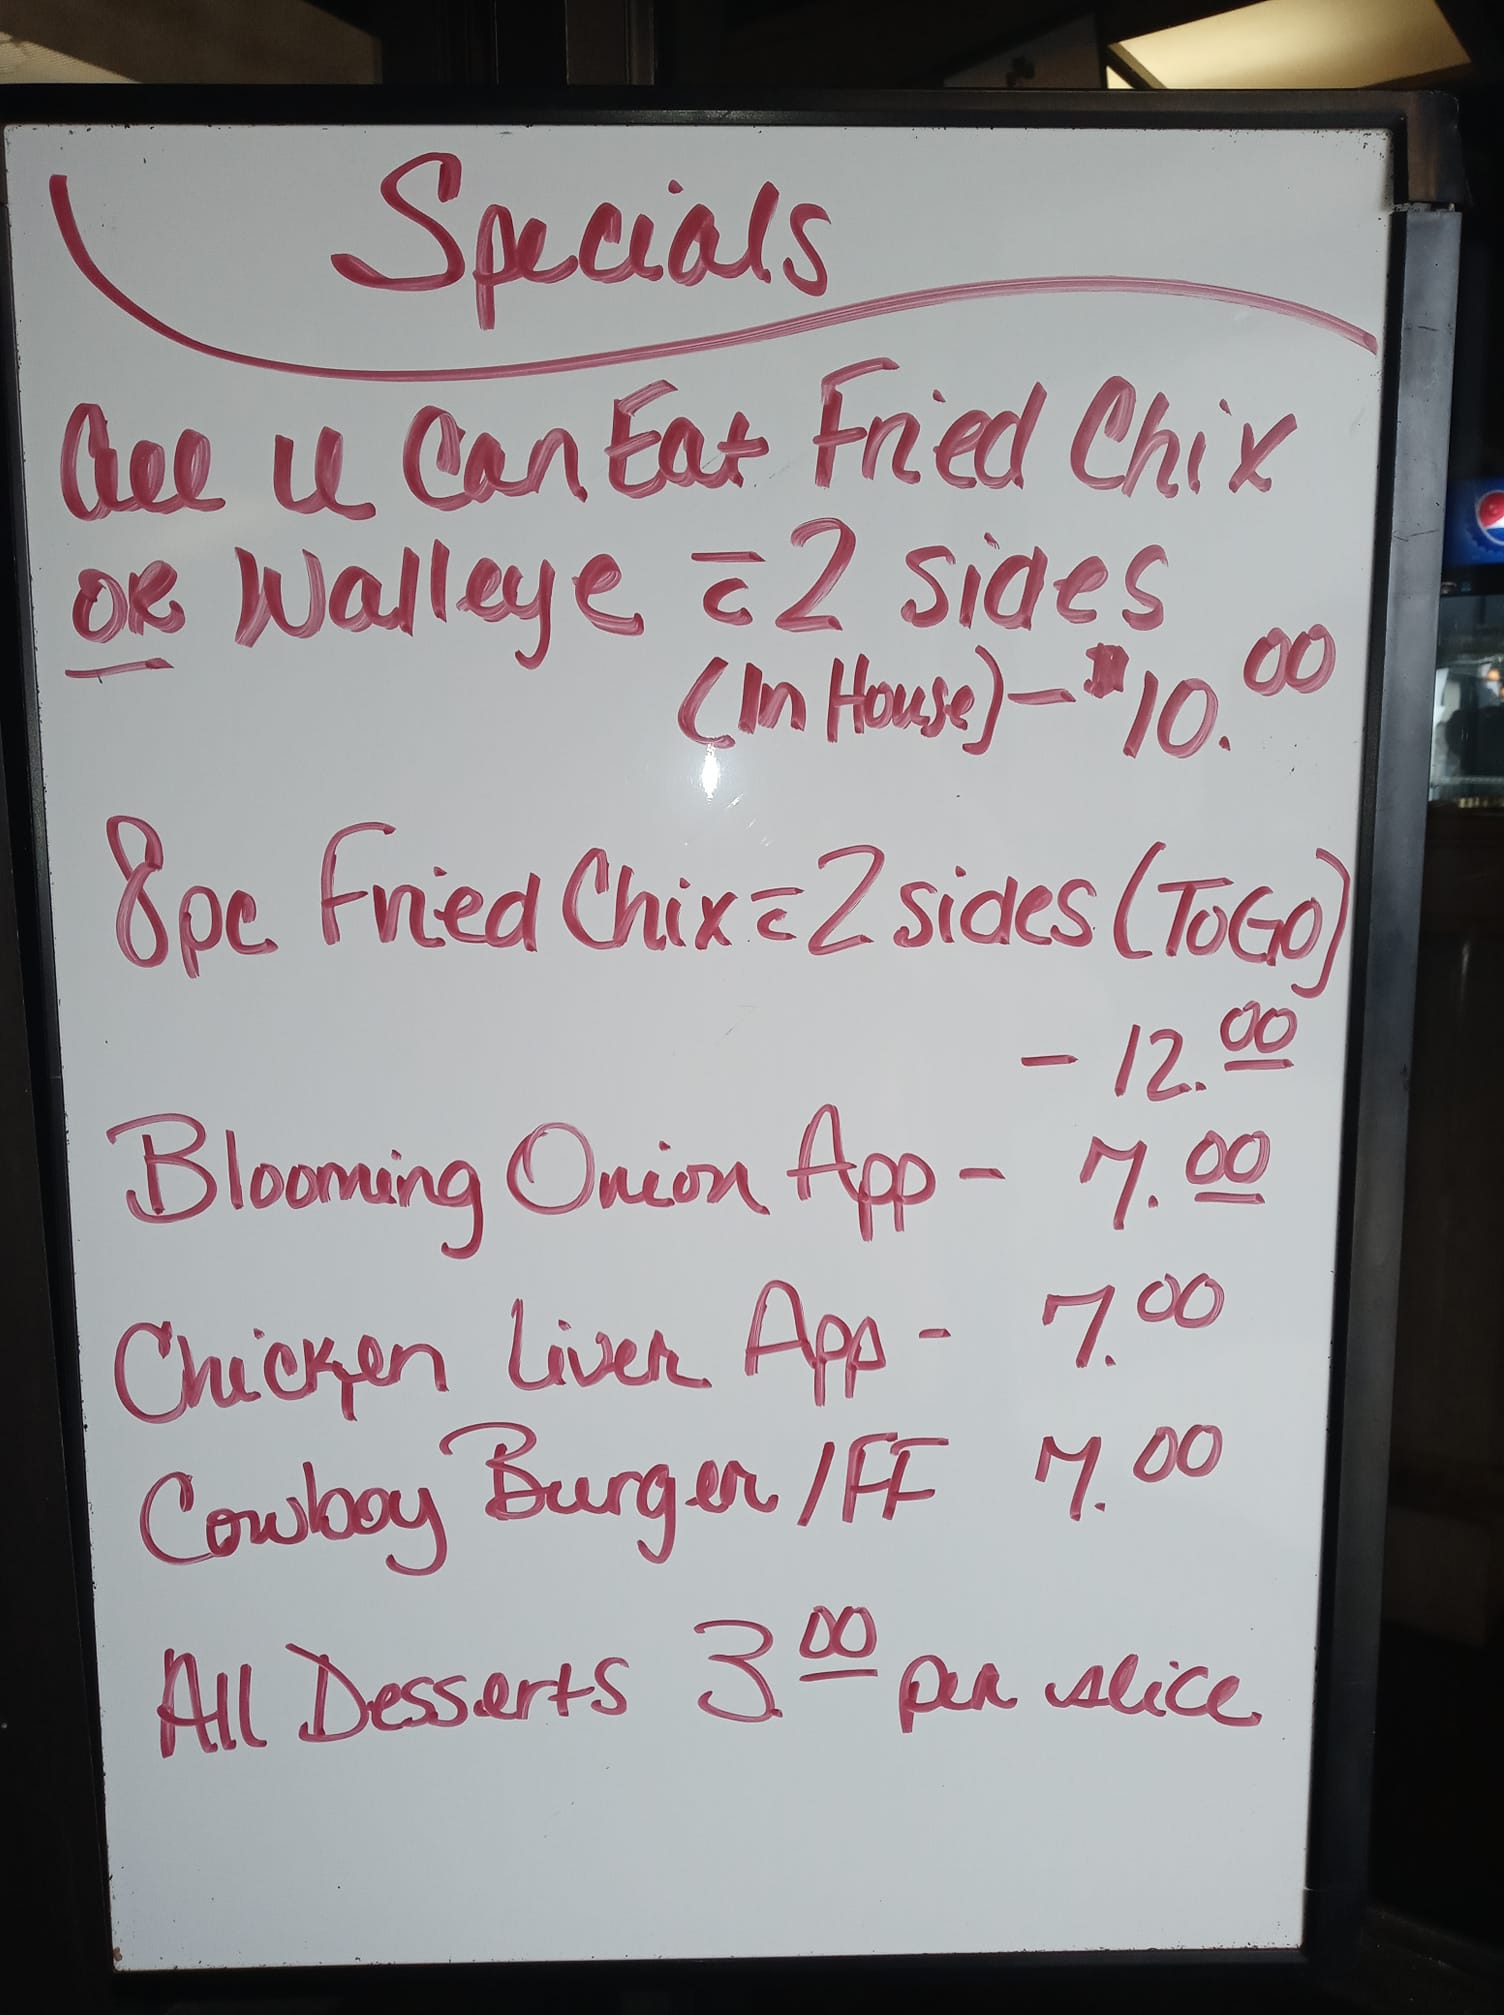 Specials
All U Can Eat Fried Chix
OR Walleye c̄ 2 sides
(In House) - $10.00
8pc Fried Chix c̄ 2 sides (To GO)
- 12.00
Blooming Onion App - 7.00
Chicken Liver App - 7.00
Cowboy Burger / FF 7.00
All Desserts 3.00 per slice